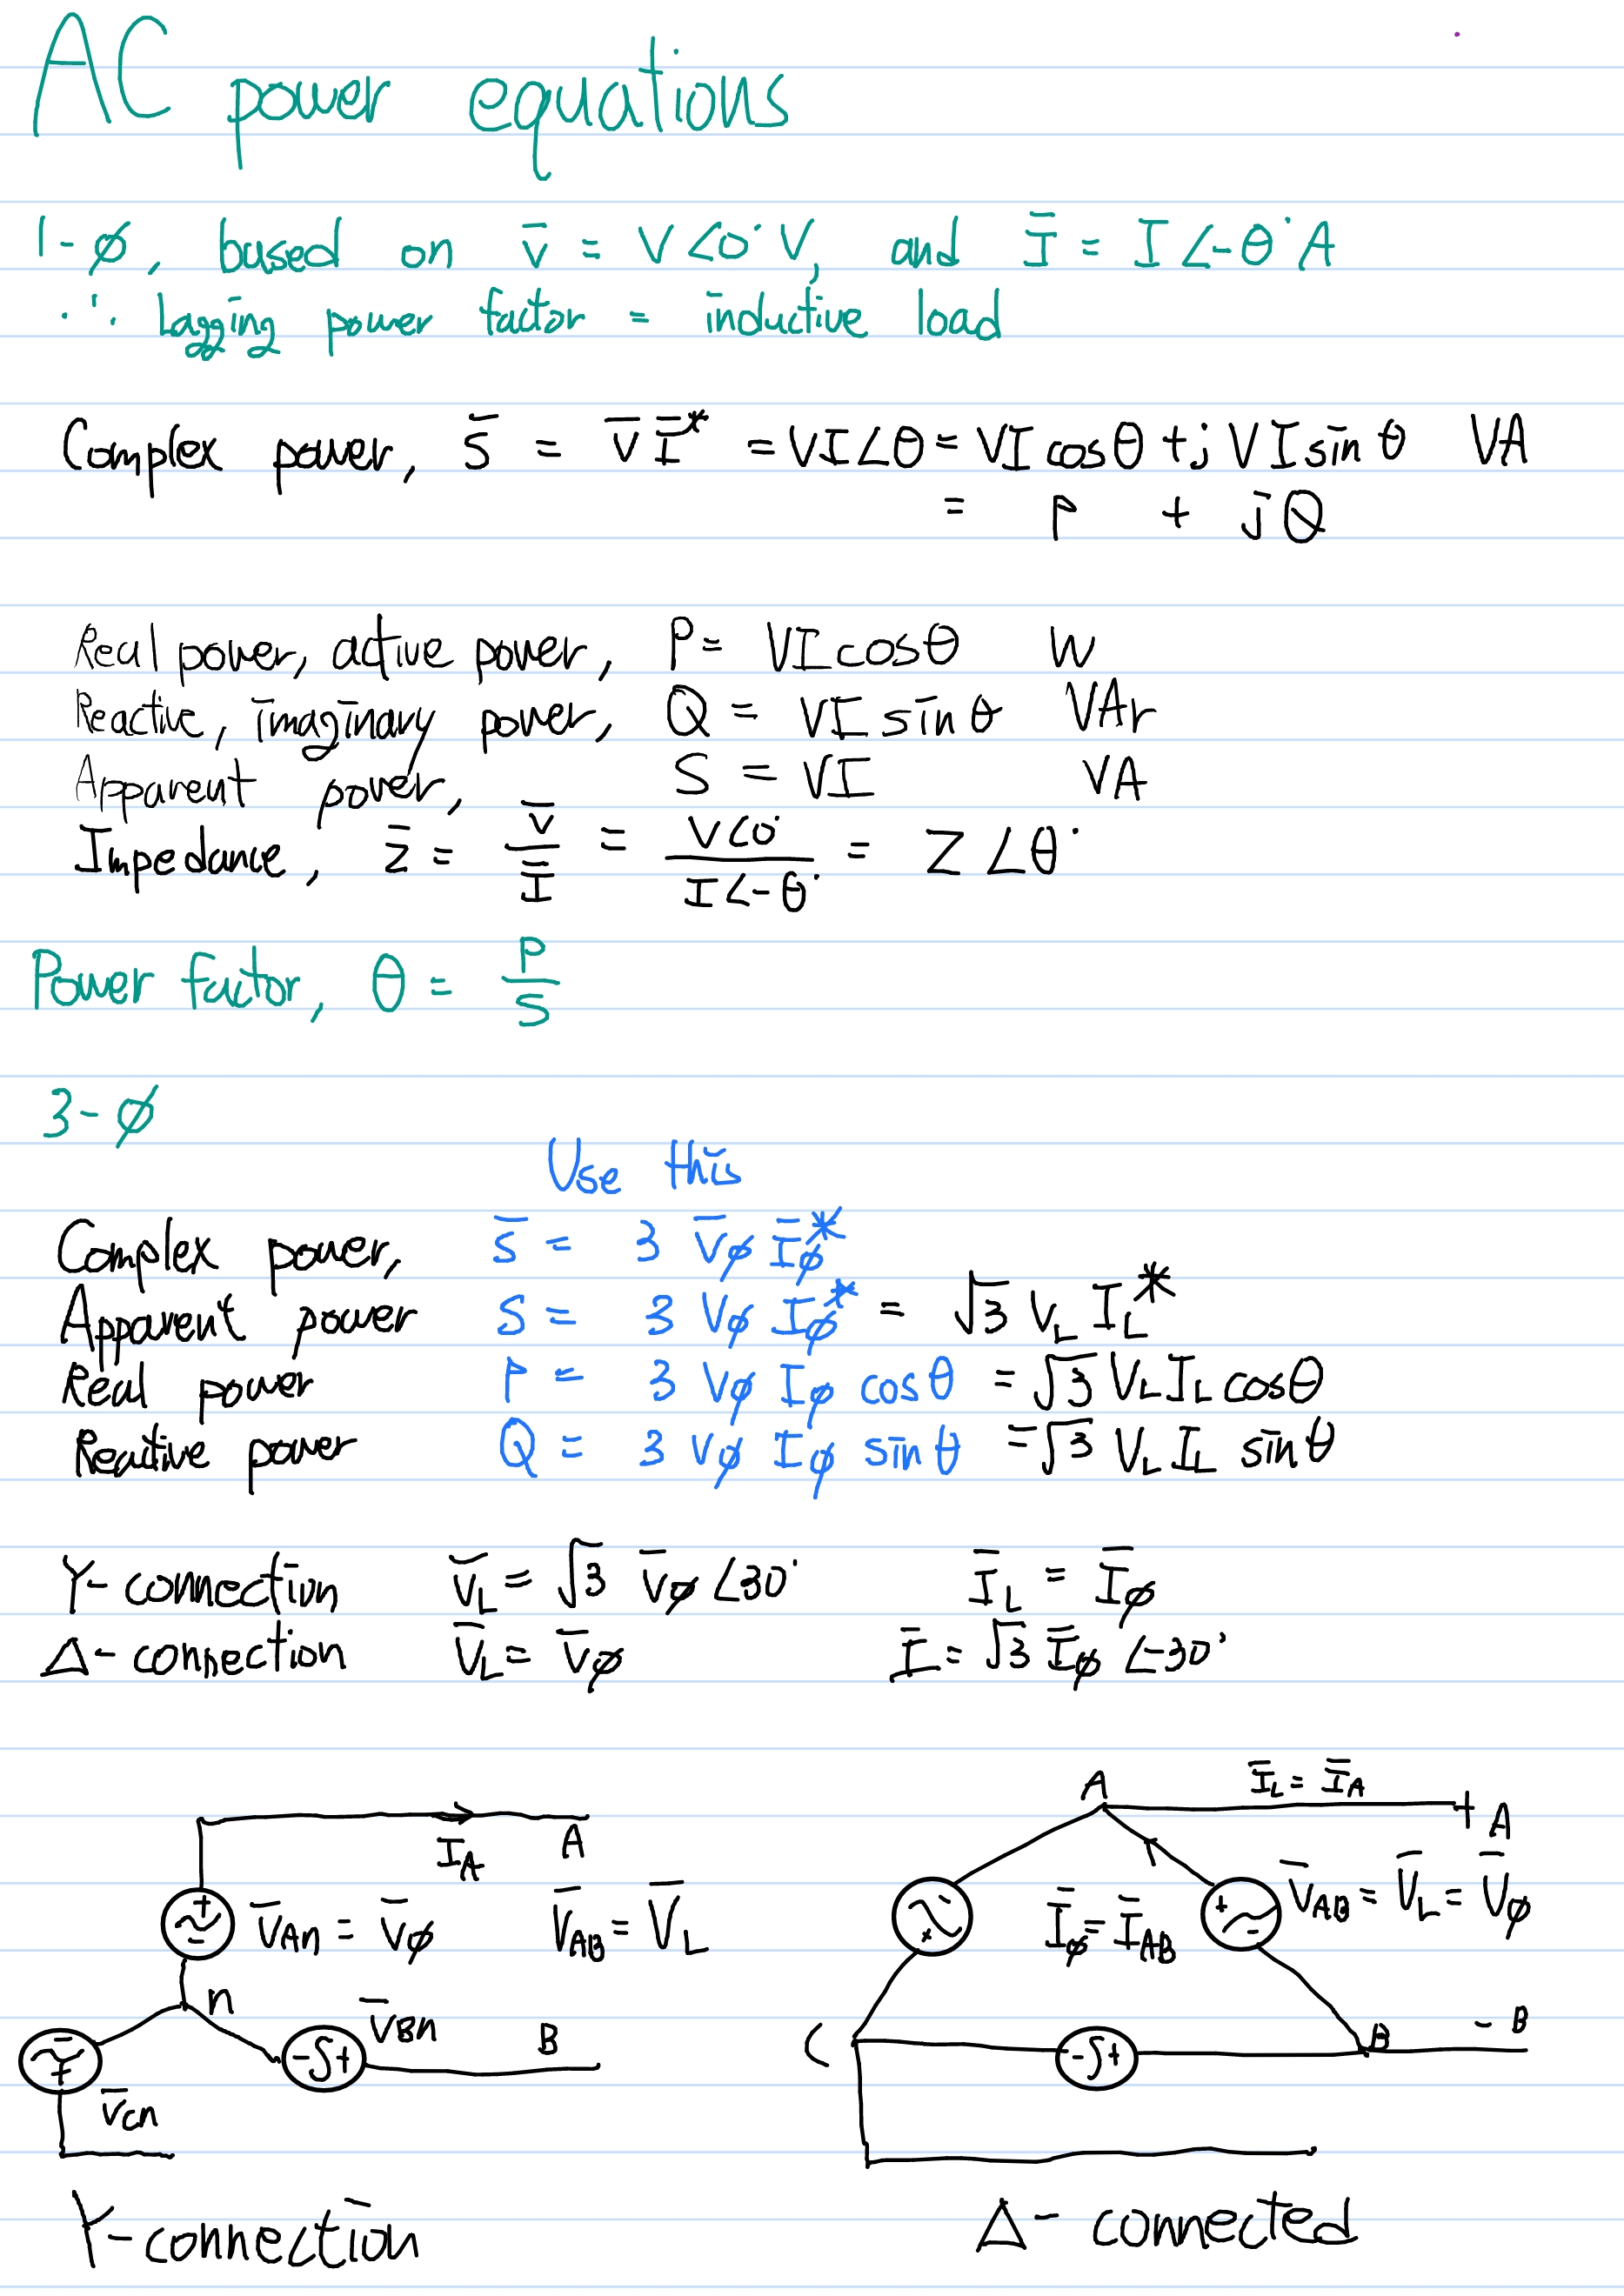 AC power equations
1-ϕ, based on V̄ = V∠0° V, and Ī = I∠-θ° A
∴ Lagging power factor = inductive load
Complex power, S̄ = V̄ Ī* = VI∠θ = VI cosθ + j VI sinθ VA
= P + jQ
Real power, active power, P = VI cosθ W
Reactive, imaginary power, Q = VI sinθ VAr
Apparent power, S = VI VA
Impedance, Z̄ = V̄/Ī = V∠0°/I∠-θ° = Z∠θ°
Power factor, θ = P/S
3-ϕ
Use this
Complex power, S̄ = 3 V̄ϕ Īϕ*
Apparent power S = 3 Vϕ Iϕ* = √3 V_L I_L*
Real power P = 3 Vϕ Iϕ cosθ = √3 V_L I_L cosθ
Reactive power Q = 3 Vϕ Iϕ sinθ = √3 V_L I_L sinθ
Y-connection V̄_L = √3 V̄ϕ ∠30° Ī_L = Īϕ
Δ-connection V̄_L = V̄ϕ Ī_L = √3 Īϕ ∠-30°
I_A A
+ - V̄An = V̄ϕ V̄AB = V̄_L
n
V̄Bn B
- +
- +
V̄cn
Y-connection
A Ī_L = Ī_A + A
+ - V̄AB = V̄_L = V̄ϕ
Īϕ = ĪAB
- +
C - + B - B
Δ-connected